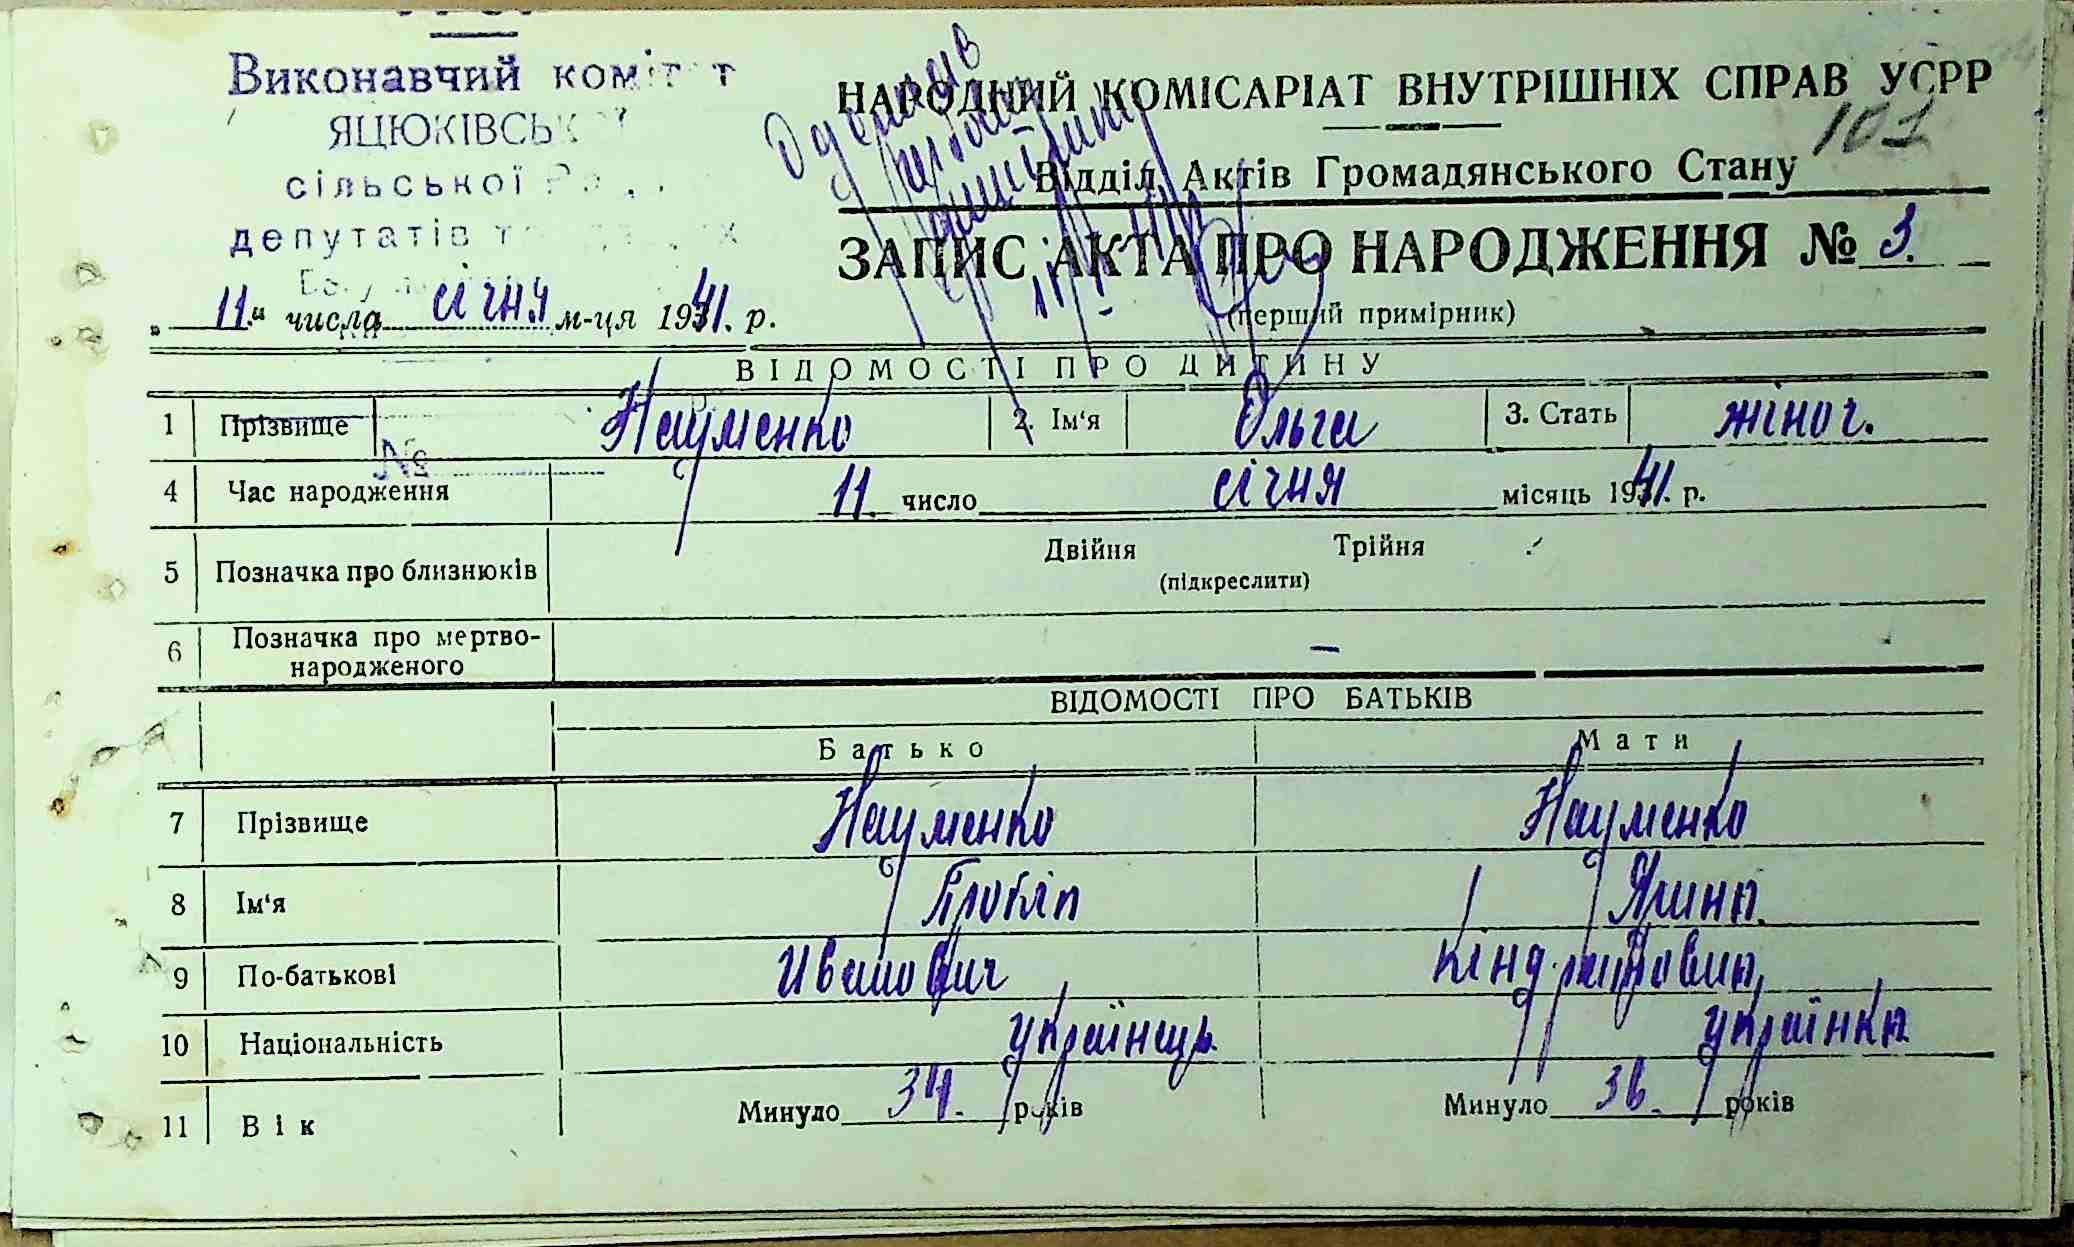 Виконавчий комітет
НАРОДНИЙ КОМІСАРІАТ ВНУТРІШНІХ СПРАВ УСРР
101
ЯЦЮКІВСЬК
Відділ Актів Громадянського Стану
сільської
депутатів
ЗАПИС АКТА ПРО НАРОДЖЕННЯ № 3.
„ 11 " числа січня м-ця 1941. р.
(перший примірник)
ВІДОМОСТІ ПРО ДИТИНУ
1 Прізвище Науменко 2. Ім'я Ольга 3. Стать жіноч.
№
4 Час народження 11 число січня місяць 1941. р.
5 Позначка про близнюків Двійня Трійня
(підкреслити)
6 Позначка про мертво-
народженого –
ВІДОМОСТІ ПРО БАТЬКІВ
Батько Мати
7 Прізвище Науменко Науменко
8 Ім'я Прокіп Ярина
9 По-батькові Иванович Кіндратовна
10 Національність українець українка
11 Вік Минуло 34. років Минуло 36. років